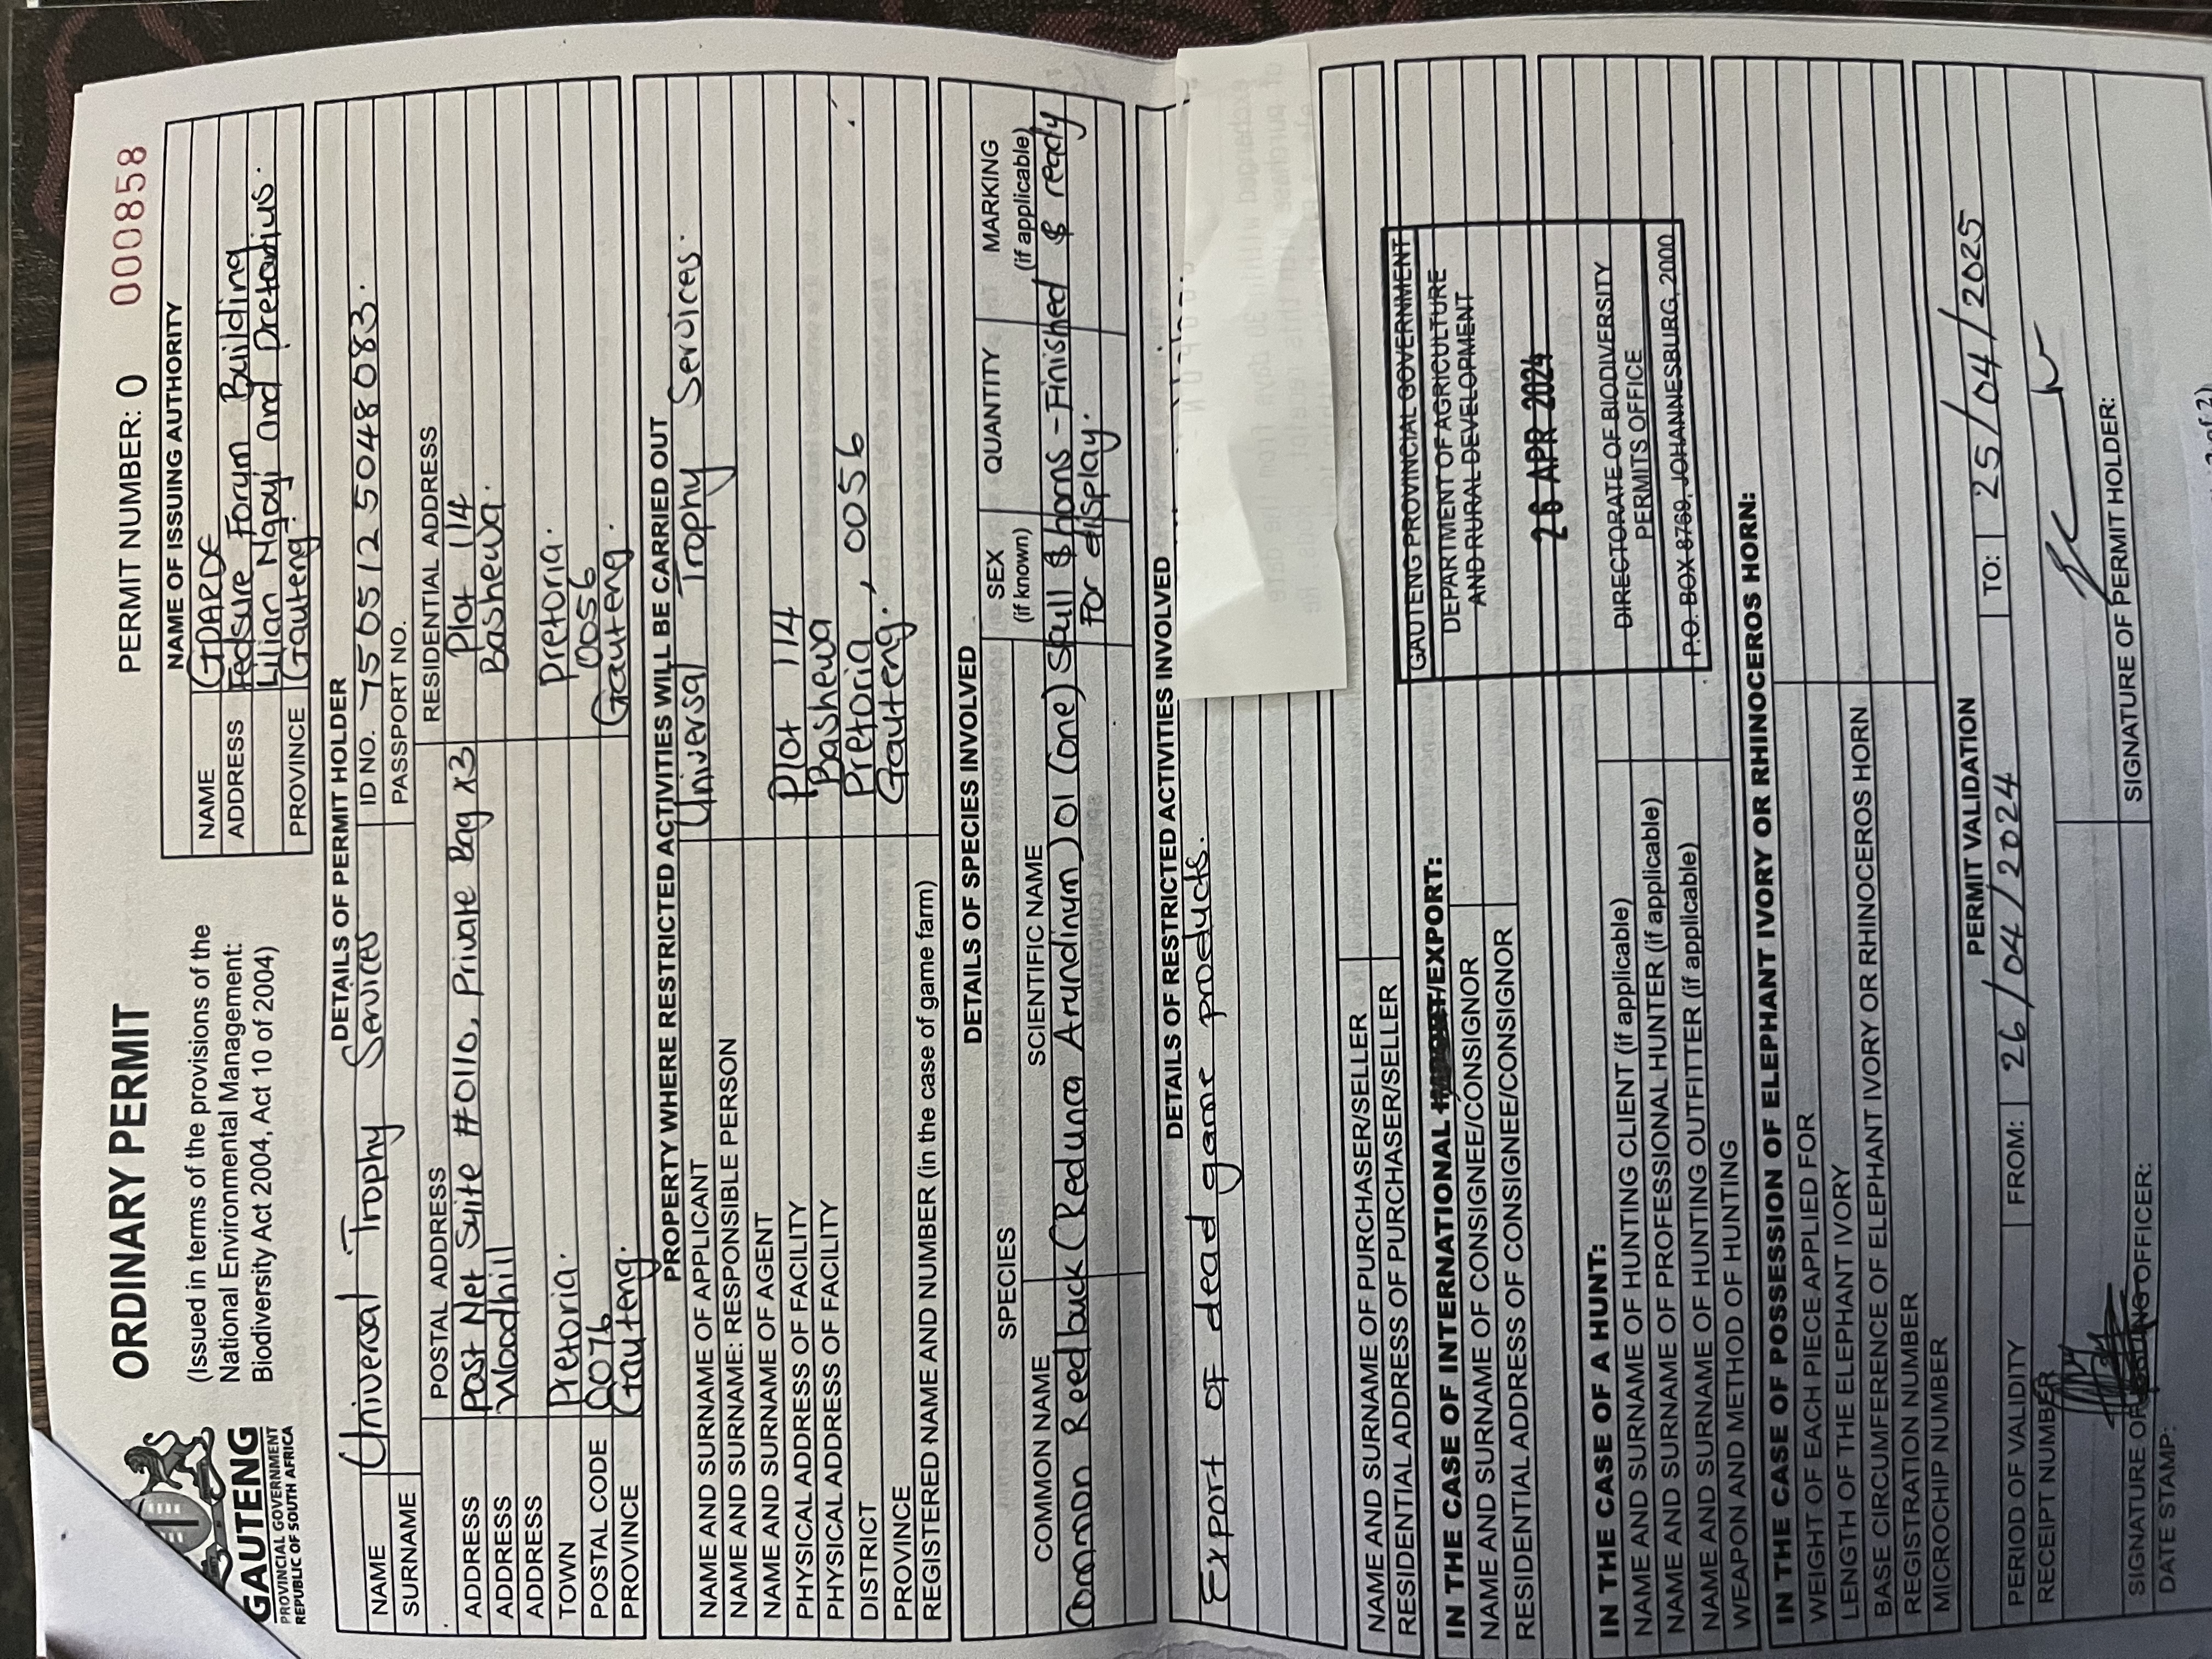 GAUTENG
PROVINCIAL GOVERNMENT
REPUBLIC OF SOUTH AFRICA
ORDINARY PERMIT
(Issued in terms of the provisions of the
National Environmental Management:
Biodiversity Act 2004, Act 10 of 2004)
PERMIT NUMBER: 0 000858
NAME OF ISSUING AUTHORITY
NAME GDARDE
ADDRESS Fedsure Forum Building
Lilian Ngoyi and Pretorius.
PROVINCE Gauteng.
DETAILS OF PERMIT HOLDER
NAME Universal Trophy Services ID NO. 7505125048083.
SURNAME PASSPORT NO.
POSTAL ADDRESS RESIDENTIAL ADDRESS
ADDRESS Post Net Suite #0110, Private Bag X3 Plot 114
ADDRESS Woodhill Bashewa.
ADDRESS
TOWN Pretoria. Pretoria.
POSTAL CODE 0076 0056
PROVINCE Gauteng. Gauteng.
PROPERTY WHERE RESTRICTED ACTIVITIES WILL BE CARRIED OUT
NAME AND SURNAME OF APPLICANT Universal Trophy Services.
NAME AND SURNAME: RESPONSIBLE PERSON
NAME AND SURNAME OF AGENT
PHYSICAL ADDRESS OF FACILITY Plot 114
PHYSICAL ADDRESS OF FACILITY Bashewa
DISTRICT Pretoria, 0056
PROVINCE Gauteng.
REGISTERED NAME AND NUMBER (in the case of game farm)
DETAILS OF SPECIES INVOLVED
SPECIES SEX QUANTITY MARKING
COMMON NAME SCIENTIFIC NAME (if known) (if applicable)
Common Reedbuck (Redunca Arundinum) 01 (one) skull & horns - Finished & ready
For display.
DETAILS OF RESTRICTED ACTIVITIES INVOLVED
Export of dead game products.
NAME AND SURNAME OF PURCHASER/SELLER
RESIDENTIAL ADDRESS OF PURCHASER/SELLER
IN THE CASE OF INTERNATIONAL IMPORT/EXPORT:
NAME AND SURNAME OF CONSIGNEE/CONSIGNOR
RESIDENTIAL ADDRESS OF CONSIGNEE/CONSIGNOR
GAUTENG PROVINCIAL GOVERNMENT
DEPARTMENT OF AGRICULTURE
AND RURAL DEVELOPMENT
26 APR 2024
DIRECTORATE OF BIODIVERSITY
PERMITS OFFICE
P.O. BOX 8769, JOHANNESBURG, 2000
IN THE CASE OF A HUNT:
NAME AND SURNAME OF HUNTING CLIENT (if applicable)
NAME AND SURNAME OF PROFESSIONAL HUNTER (if applicable)
NAME AND SURNAME OF HUNTING OUTFITTER (if applicable)
WEAPON AND METHOD OF HUNTING
IN THE CASE OF POSSESSION OF ELEPHANT IVORY OR RHINOCEROS HORN:
WEIGHT OF EACH PIECE APPLIED FOR
LENGTH OF THE ELEPHANT IVORY
BASE CIRCUMFERENCE OF ELEPHANT IVORY OR RHINOCEROS HORN
REGISTRATION NUMBER
MICROCHIP NUMBER
PERMIT VALIDATION
PERIOD OF VALIDITY FROM: 26/04/2024 TO: 25/04/2025
RECEIPT NUMBER
SIGNATURE OF ISSUING OFFICER: SIGNATURE OF PERMIT HOLDER:
DATE STAMP: